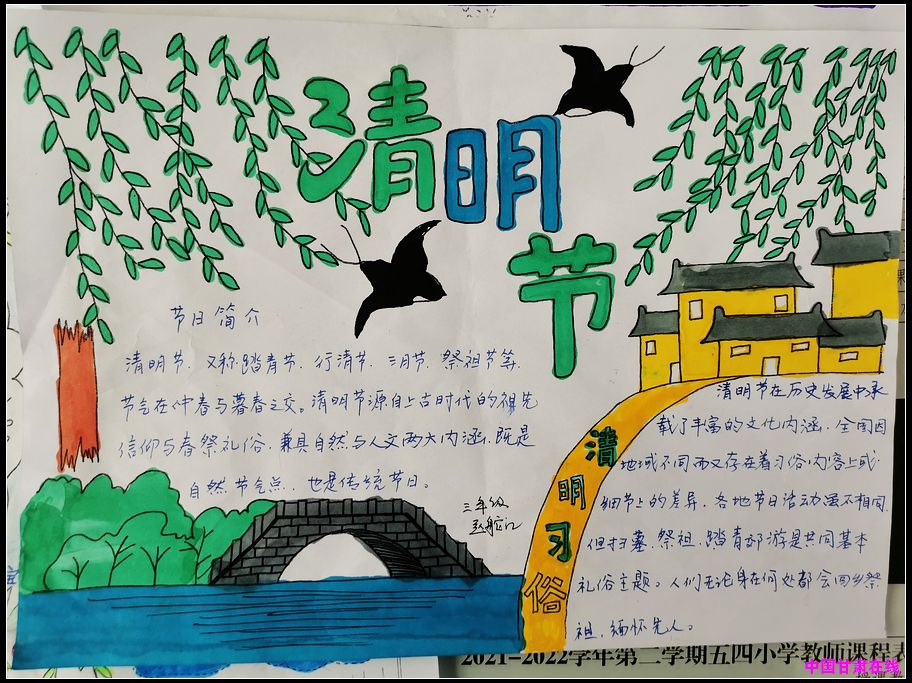 清明节
节日简介
清明节,又称踏青节、行清节、三月节、祭祖节等,
节气在仲春与暮春之交。清明节源自上古时代的祖先
信仰与春祭礼俗,兼具自然与人文两大内涵,既是
自然节气点,也是传统节日。
三年级
清明习俗
清明节在历史发展中承
载了丰富的文化内涵,全国因
地域不同而又存在着习俗内容上或
细节上的差异,各地节日活动虽不相同
但扫墓、祭祖、踏青郊游是共同基本
礼俗主题。人们无论身在何处都会回乡祭
祖、缅怀先人。
2021-2022学年第二学期五四小学教师课程表
中国甘肃在线